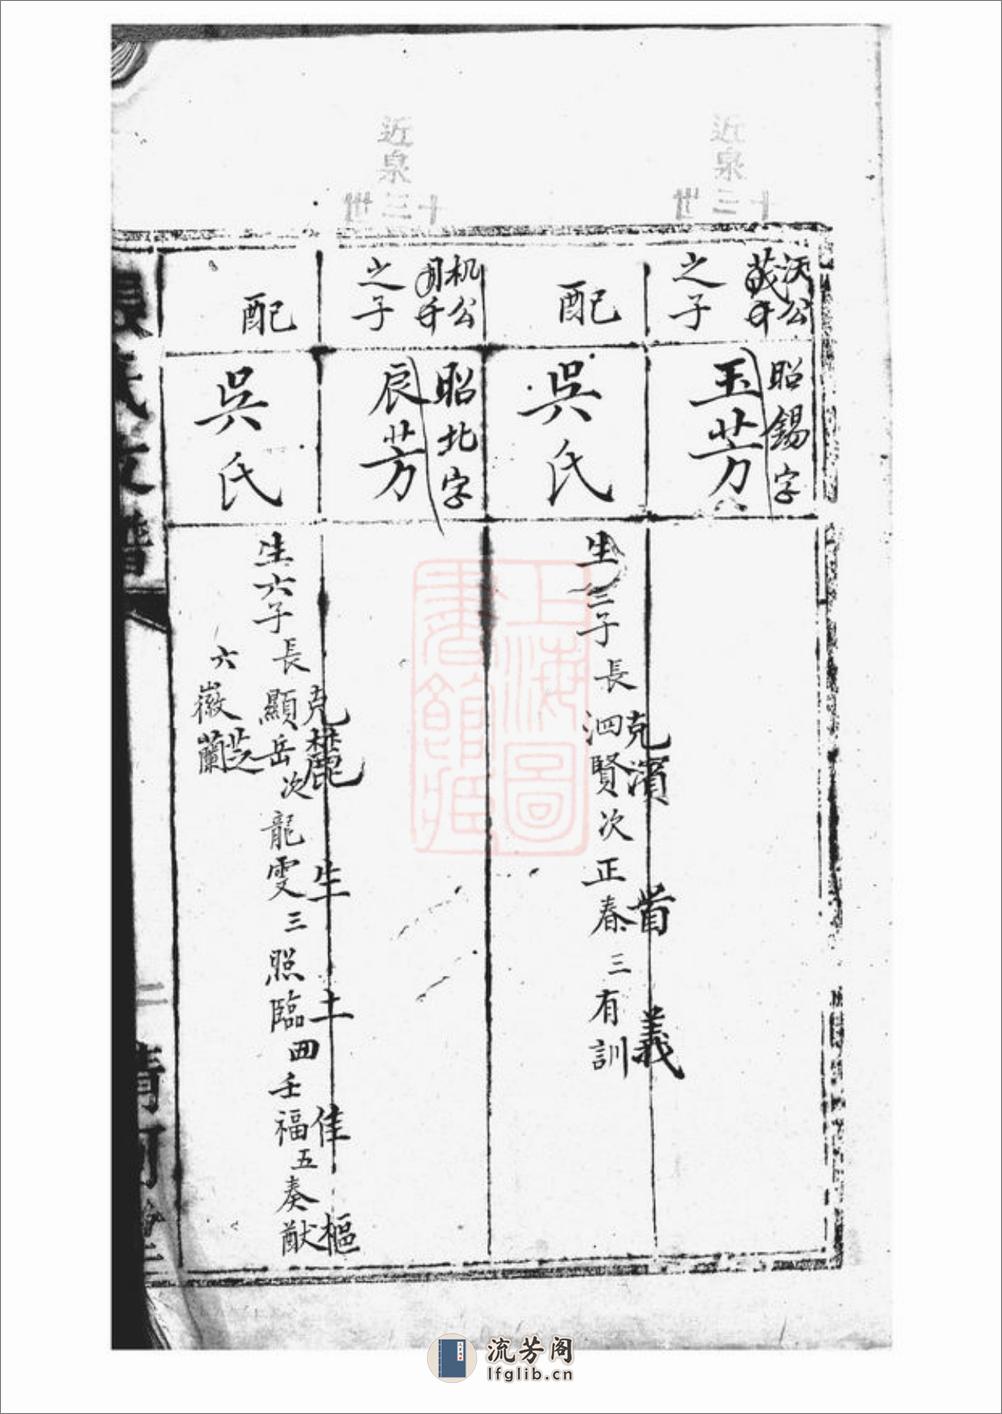 近泉
十三世
沃公
之子
昭錫字
玉芳
配
吳氏
生三子
長泗賢次正春三有訓
克濱
首
義
近泉
十三世
机公
之子
昭北字
辰芳
配
吳氏
生六子
長顯岳次龍雯三照臨四壬福五奏猷
克麓
生
土
佳
樞
六徽蘭
芝
氏支譜
清河
上海圖
書館藏
流芳阁
lfglib.cn